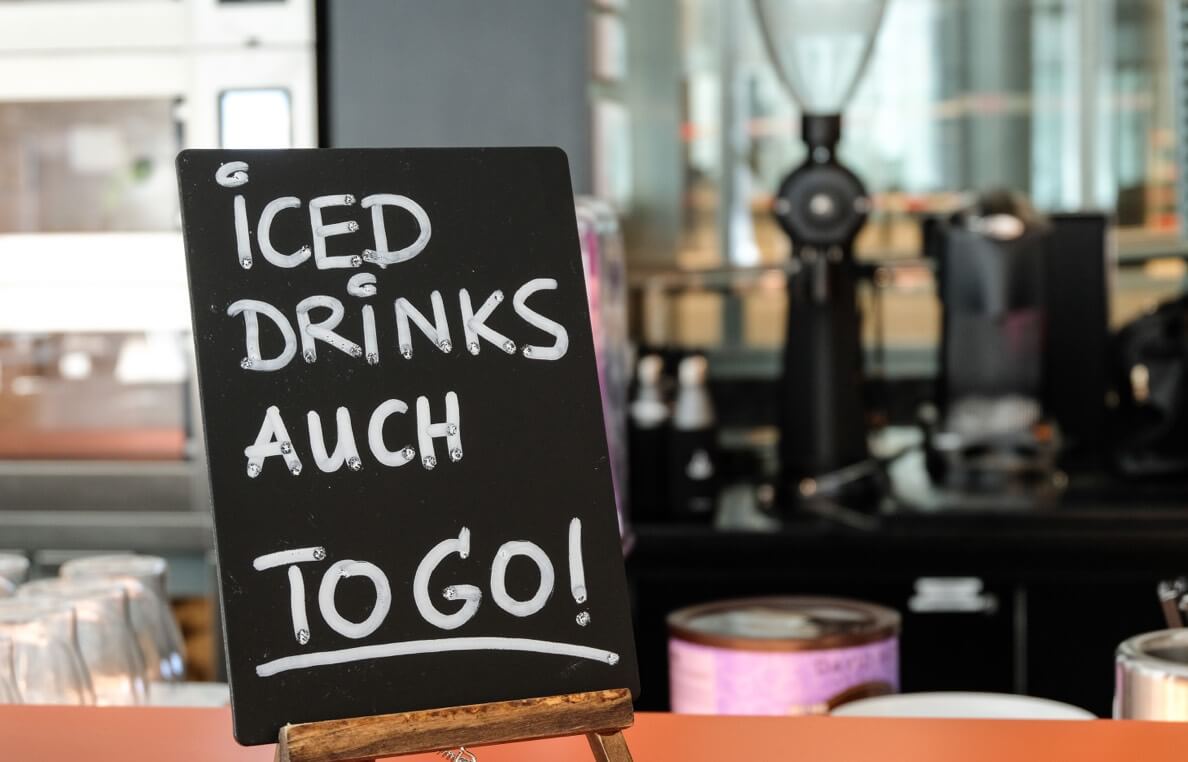 iCED
DRiNKS
AUCH
TO GO!